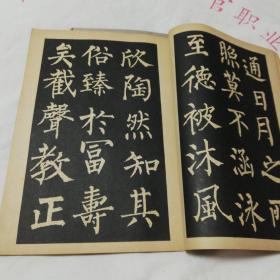 官职业
通日月之所
照莫不涵泳
至德被沐風
欣陶然知其
俗臻於富壽
矣截聲教正